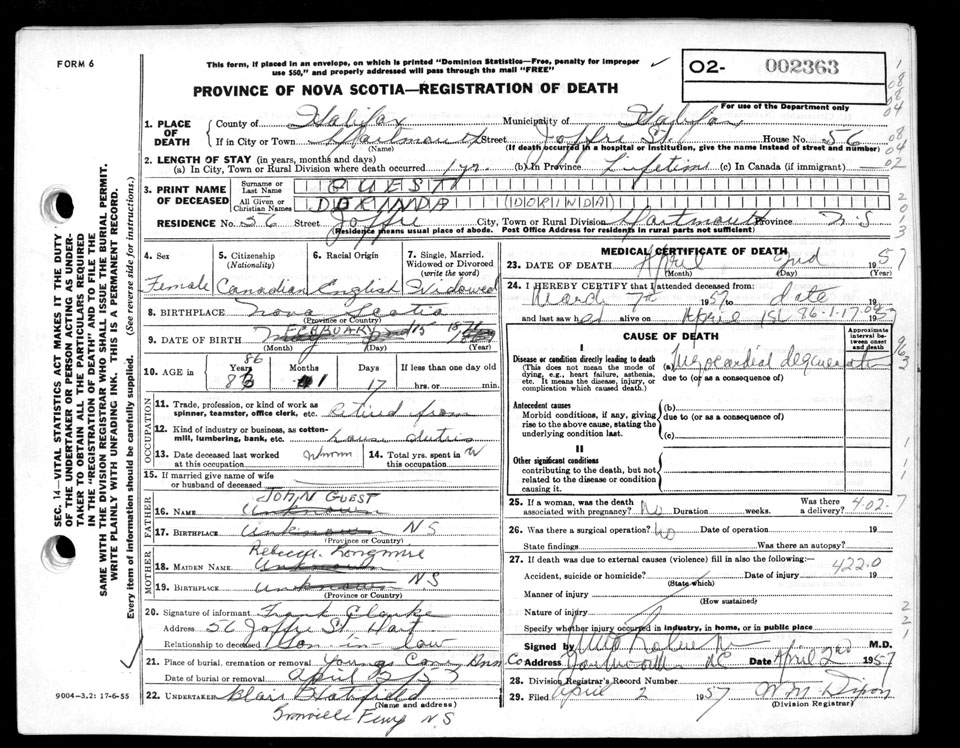 FORM 6
This form, if placed in an envelope, on which is printed "Dominion Statistics—Free, penalty for improper
use $50," and properly addressed will pass through the mail "FREE"
O2- 002363
For use of the Department only
PROVINCE OF NOVA SCOTIA—REGISTRATION OF DEATH
1. PLACE OF DEATH
County of Halifax Municipality of Halifax
If in City or Town Dartmouth Street Joffre St. House No. 56
(Name) (If death occurred in a hospital or institution, give the name instead of street and number)
2. LENGTH OF STAY (in years, months and days)
(a) In City, Town or Rural Division where death occurred 1 yr. (b) In Province Lifetime (c) In Canada (if immigrant)
3. PRINT NAME OF DECEASED
Surname or Last Name GUEST
All Given or Christian Names DORINDA (DORINDA)
RESIDENCE No. 56 Street Joffre City, Town or Rural Division Dartmouth Province N.S
(Residence means usual place of abode. Post Office Address for residents in rural parts not sufficient)
4. Sex
Female
5. Citizenship
(Nationality)
Canadian
6. Racial Origin
English
7. Single, Married, Widowed or Divorced
(write the word)
Widowed
8. BIRTHPLACE Nova Scotia
(Province or Country)
9. DATE OF BIRTH FEBRUARY 15 18
(Month) (Day) (Year)
10. AGE in
Years Months Days If less than one day old
86 1 17 hrs. or min.
OCCUPATION
11. Trade, profession, or kind of work as
spinner, teamster, office clerk, etc. Retired from
12. Kind of industry or business, as cotton-
mill, lumbering, bank, etc. house duties
13. Date deceased last worked
at this occupation
14. Total yrs. spent in
this occupation
15. If married give name of wife
or husband of deceased
FATHER
JOHN GUEST
16. NAME Unknown
17. BIRTHPLACE Unknown NS
(Province or Country)
MOTHER
Rebecca Longmire
18. MAIDEN NAME Unknown
19. BIRTHPLACE Unknown NS
(Province or Country)
20. Signature of informant Frank Clarke
Address 56 Joffre St. Dart
Relationship to deceased Son in law
21. Place of burial, cremation or removal Youngs Cove Ann Co
Date of burial or removal April
22. UNDERTAKER Blair
(Name and address)
Granville Ferry N.S
MEDICAL CERTIFICATE OF DEATH
23. DATE OF DEATH April 2nd 1957
(Month) (Day) (Year)
24. I HEREBY CERTIFY that I attended deceased from:
March 7th 1957 to date
and last saw her alive on April 1st 86-1-17-0
CAUSE OF DEATH
Approximate interval between onset and death
I
Disease or condition directly leading to death
(This does not mean the mode of
dying, e.g., heart failure, asthenia,
etc. It means the disease, injury, or
complication which caused death.)
(a) Myocardial degeneration
due to (or as a consequence of)
Antecedent causes
Morbid conditions, if any, giving
rise to the above cause, stating the
underlying condition last.
(b)
due to (or as a consequence of)
(c)
II
Other significant conditions
contributing to the death, but not
related to the disease or condition
causing it.
25. If a woman, was the death
associated with pregnancy? No Duration weeks. Was there
a delivery? 4-02-7
26. Was there a surgical operation? No Date of operation 19
State findings Was there an autopsy?
27. If death was due to external causes (violence) fill in also the following:—
Accident, suicide or homicide? Date of injury 19
(State which)
422.0
Manner of injury
(How sustained)
Nature of injury
Specify whether injury occurred in industry, in home, or in public place
Signed by M.D.
Address Dartmouth Date April 2nd 1957
28. Division Registrar's Record Number
29. Filed April 2 1957 W M Dixon
(Division Registrar)
SEC. 14—VITAL STATISTICS ACT MAKES IT THE DUTY
OF THE UNDERTAKER OR PERSON ACTING AS UNDER-
TAKER TO OBTAIN ALL THE PARTICULARS REQUIRED
IN THE "REGISTRATION OF DEATH" AND TO FILE IT
SAME WITH THE DIVISION REGISTRAR WHO SHALL ISSUE THE BURIAL PERMIT.
WRITE PLAINLY WITH UNFADING INK. THIS IS A PERMANENT RECORD.
Every item of information should be carefully supplied. (See reverse side for instructions.)
9004-3.2: 17-6-55